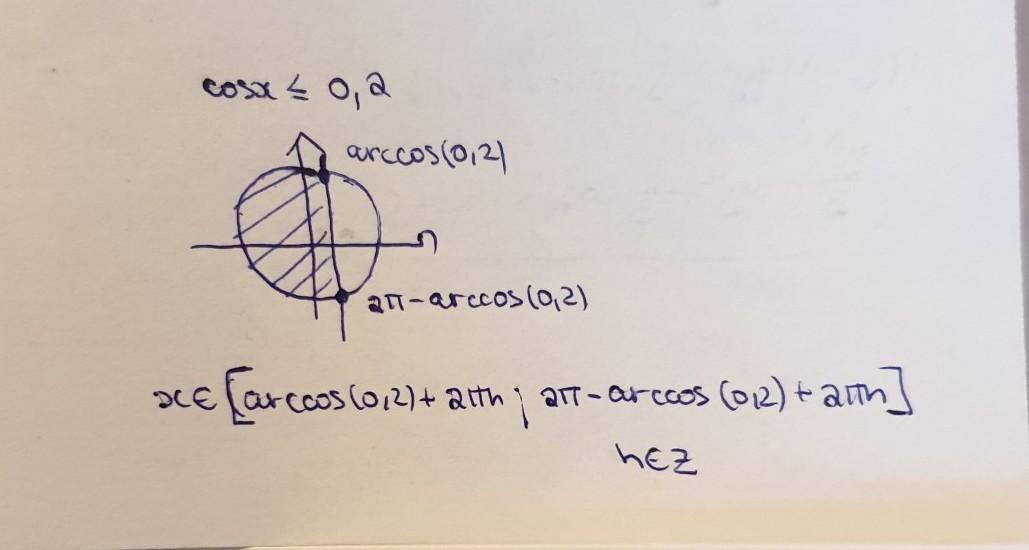 cosx ≤ 0,2
arccos(0,2)
2π-arccos(0,2)
x∈[arccos(0,2)+2πn; 2π-arccos(0,2)+2πn]
n∈Z